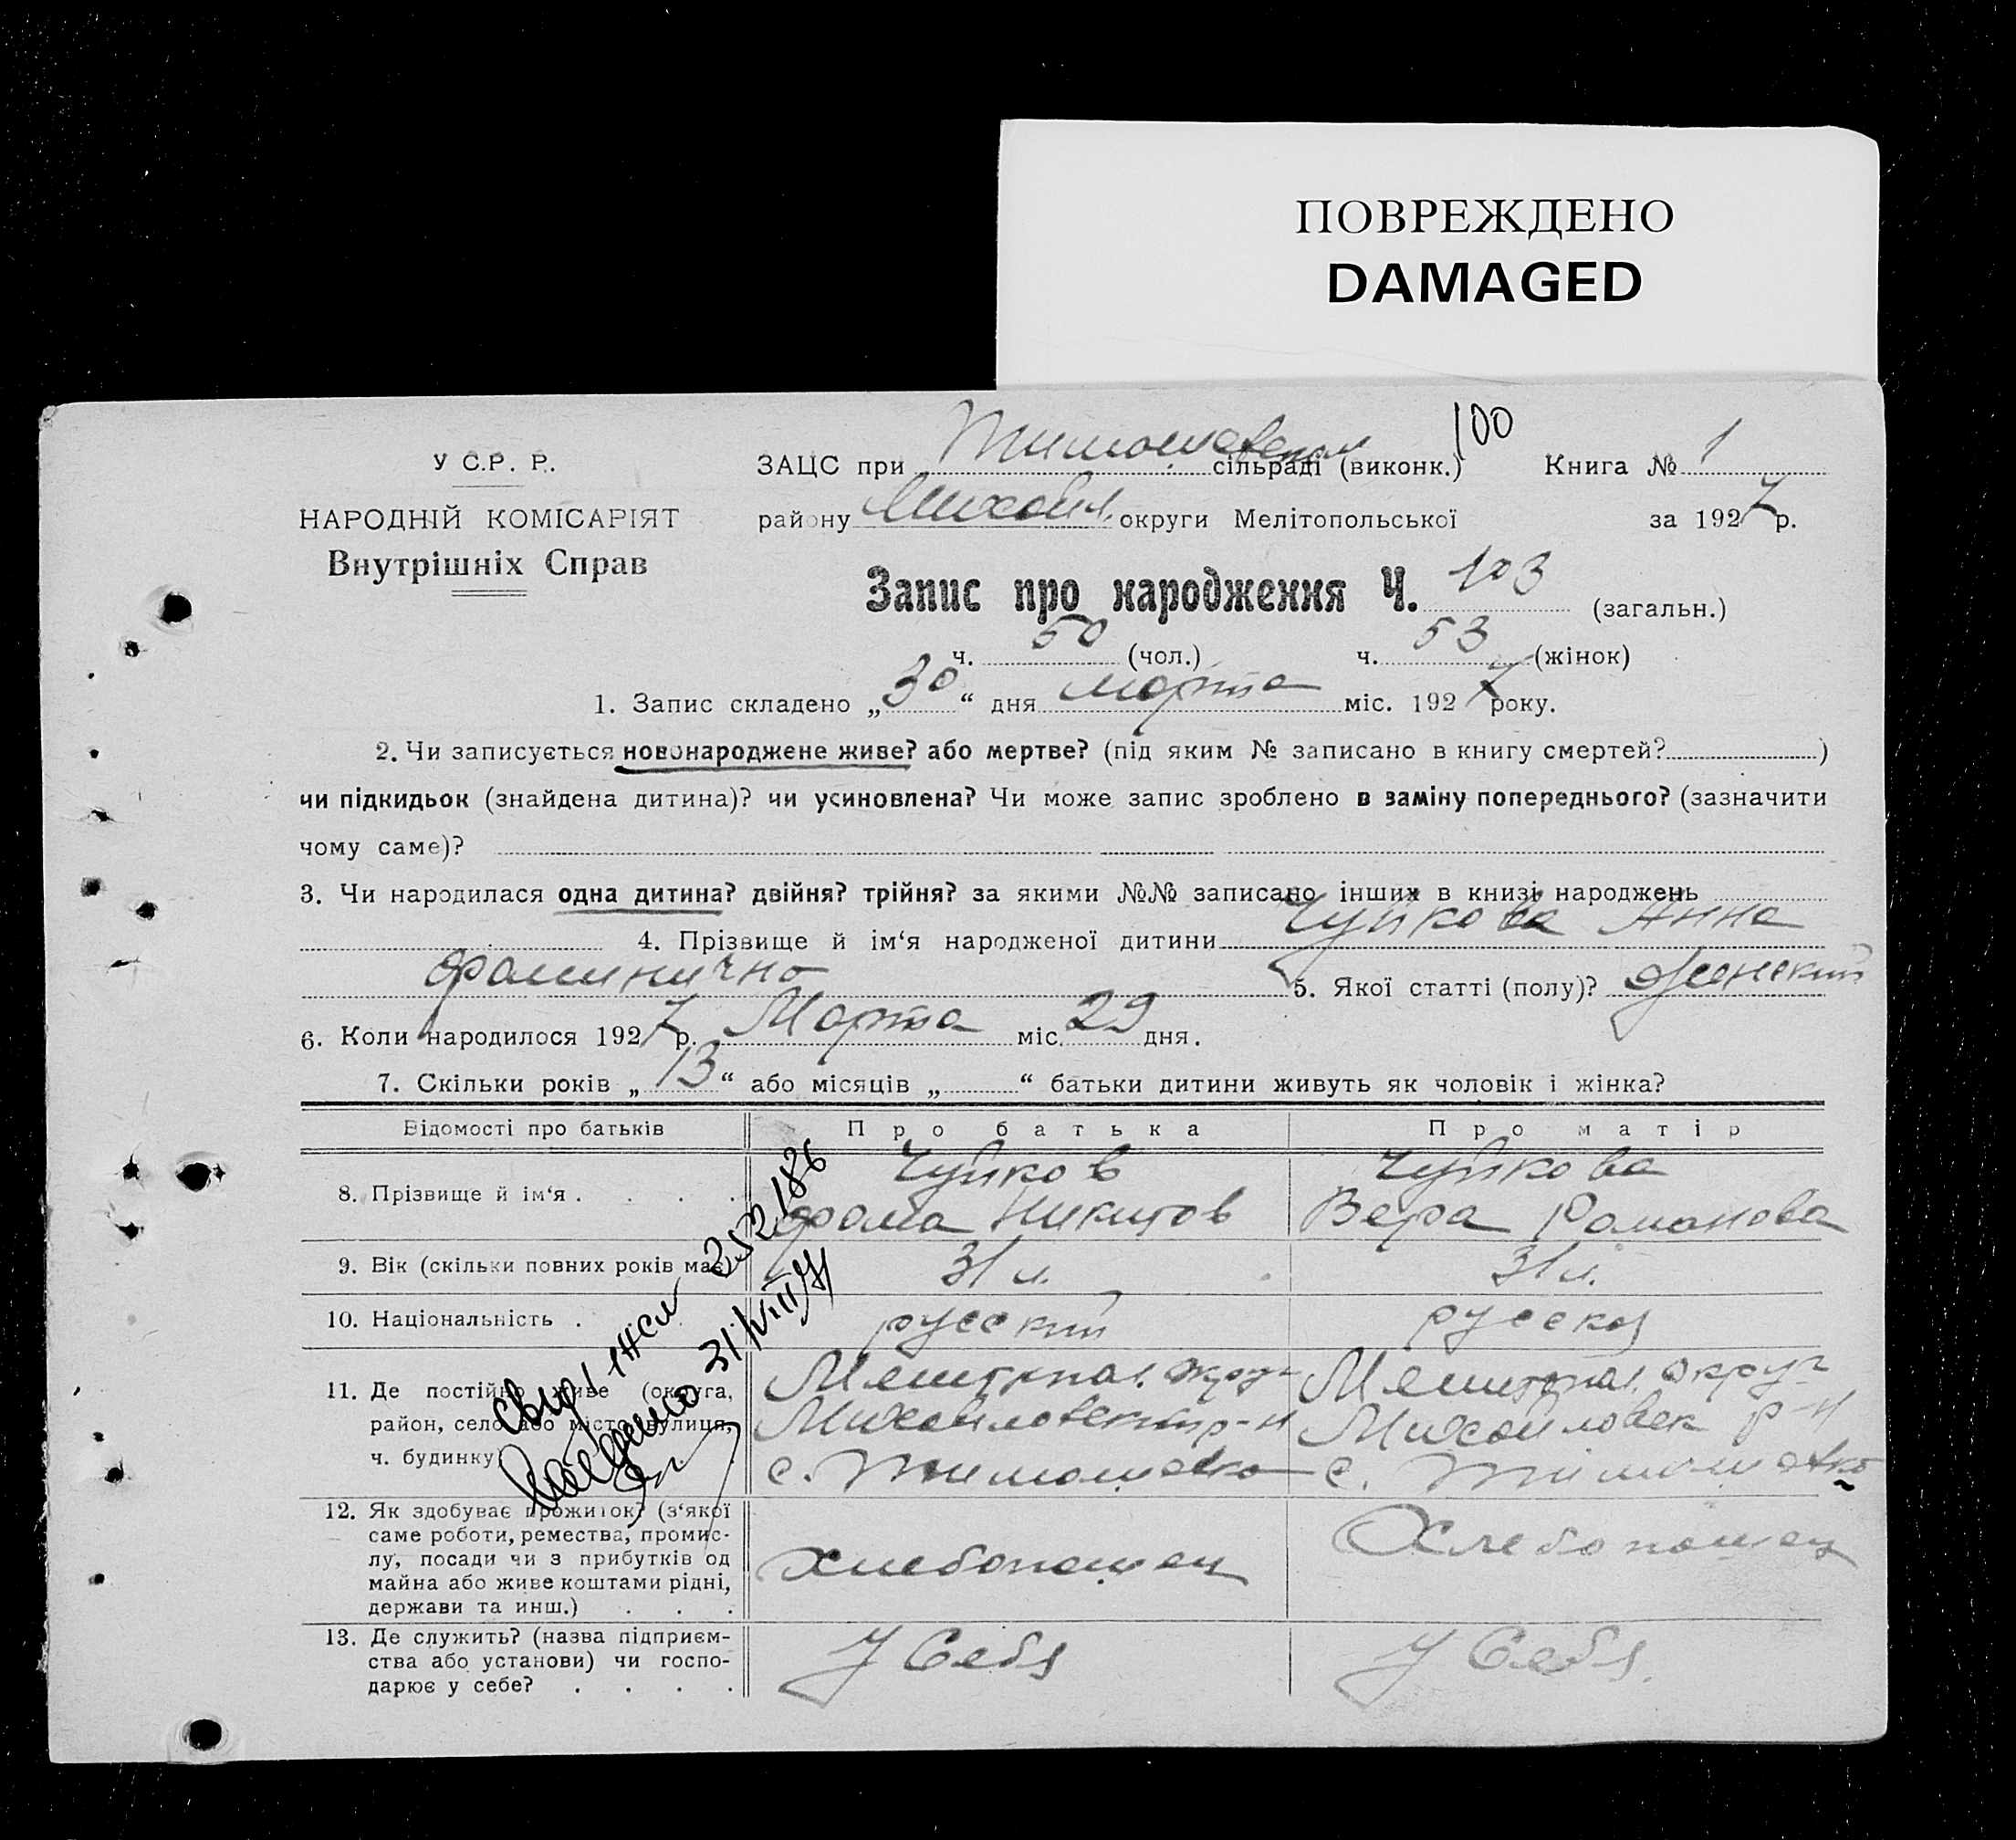 ПОВРЕЖДЕНО
DAMAGED
100
У С.Р. Р.
НАРОДНІЙ КОМІСАРІЯТ
Внутрішніх Справ
ЗАЦС при Тимошевском сільраді (виконк.) Книга № 1
району Михайл. округи Мелітопольської за 1927 р.
Запис про народження Ч. 103 (загальн.)
ч. 50 (чол.) ч. 53 (жінок)
1. Запис складено „30“ дня марта міс. 1927 року.
2. Чи записується новонароджене живе? або мертве? (під яким № записано в книгу смертей? )
чи підкидьок (знайдена дитина)? чи усиновлена? Чи може запис зроблено в заміну попереднього? (зазначити
чому саме)?
3. Чи народилася одна дитина? двійня? трійня? за якими №№ записано інших в книзі народжень
4. Прізвище й ім‘я народженої дитини Чуйкова Анна
Фоминична 5. Якої статті (полу)? женский
6. Коли народилося 1927 р. Марта міс. 29 дня.
7. Скільки років „13“ або місяців „ “ батьки дитини живуть як чоловік і жінка?
Відомості про батьків Про батька Про матір
8. Прізвище й ім‘я . . . . Чуйков Чуйкова
Фома Никитов Вера Романова
9. Вік (скільки повних років має) 31 л. 31 л.
10. Національність . русский русская
11. Де постійно живе (округа, Мелитопол. округ Мелитопол. округ
район, село або місто, вулиця, Михайловский р-н Михайловск р-н
ч. будинку) с. Тимошевка с. Тимошевка
12. Як здобуває прожиток? (з‘якої
саме роботи, ремества, промис-
лу, посади чи з прибутків од хлебопашец Хлебопашец
майна або живе коштами рідні,
держави та инш.) . . .
13. Де служить? (назва підприєм- У Себя У Себя.
ства або установи) чи госпо-
дарює у себе? . . . .
31/VIII